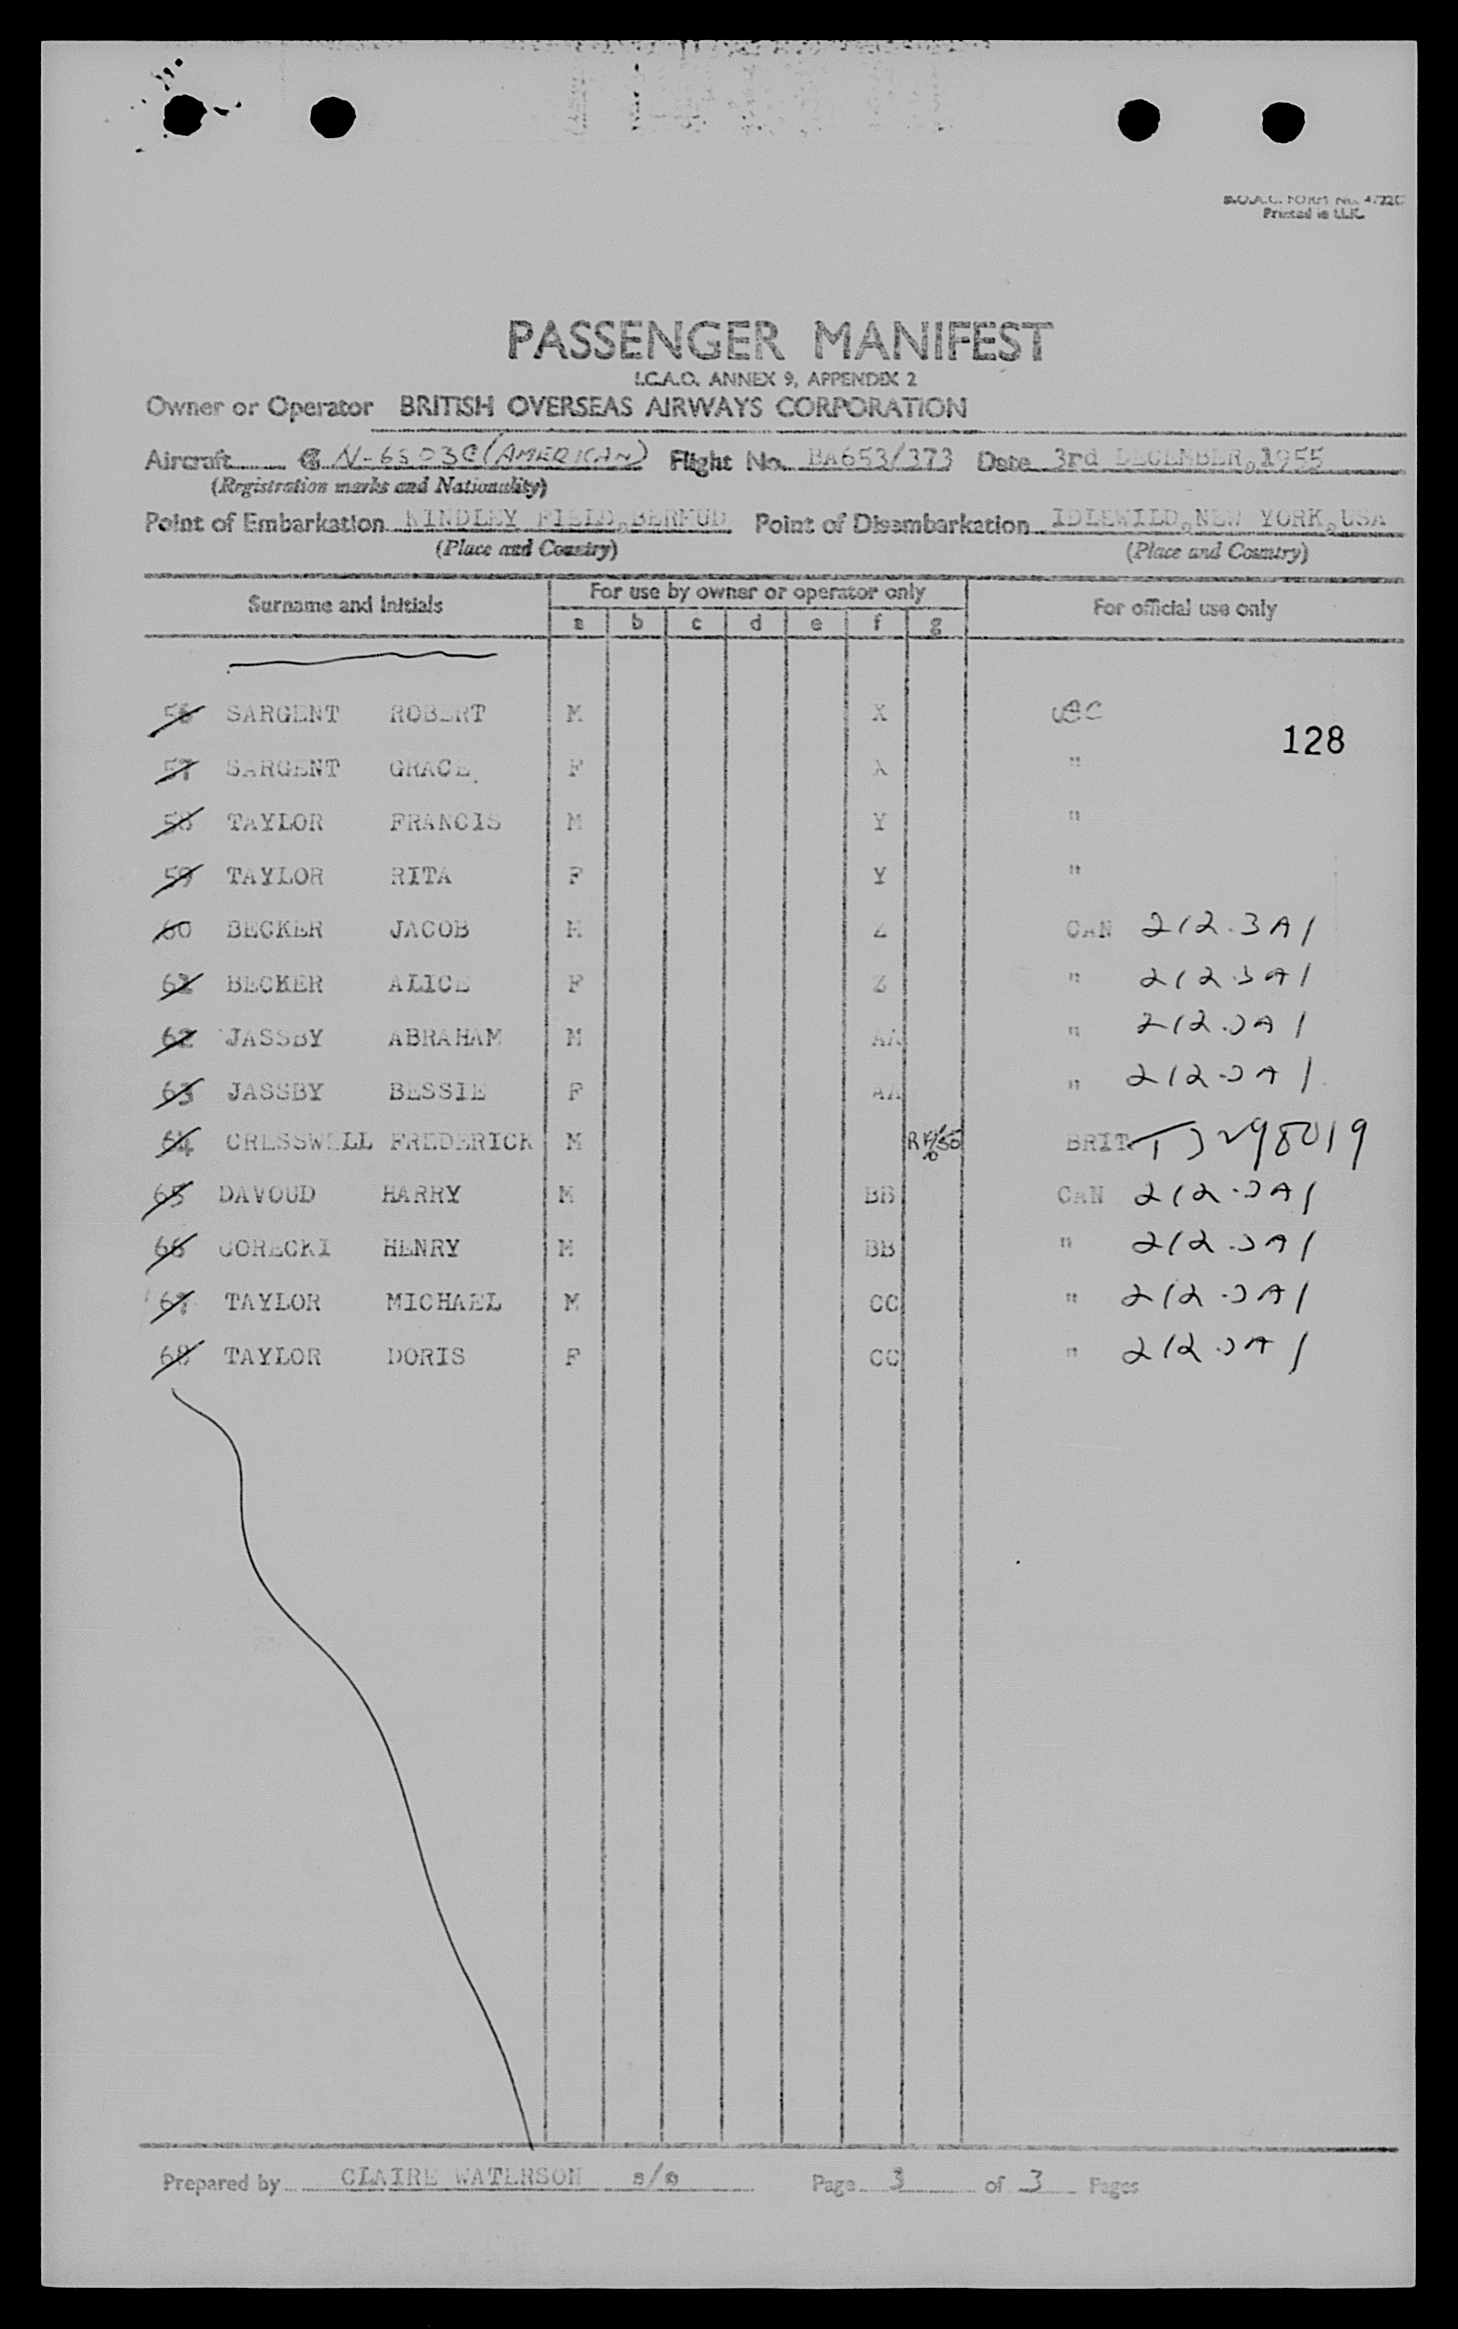 B.O.A.C. FORM No. 4722C
Printed in U.K.
PASSENGER MANIFEST
I.C.A.O. ANNEX 9, APPENDIX 2
Owner or Operator BRITISH OVERSEAS AIRWAYS CORPORATION
Aircraft G N-6503C (AMERICAN) Flight No. BA653/373 Date 3rd DECEMBER, 1955
(Registration marks and Nationality)
Point of Embarkation KINDLEY FIELD, BERMUD Point of Disembarkation IDLEWILD, NEW YORK, USA
(Place and Country) (Place and Country)
Surname and Initials For use by owner or operator only For official use only
a b c d e f g
56 SARGENT ROBERT M X USC
128
57 SARGENT GRACE F X "
58 TAYLOR FRANCIS M Y "
59 TAYLOR RITA F Y "
60 BECKER JACOB M Z CAN 212.3A1
61 BECKER ALICE F Z " 212.3A1
62 JASSBY ABRAHAM M AA " 212.3A1
63 JASSBY BESSIE F AA " 212.3A1
64 CRESSWELL FREDERICK M BRIT T3298019
65 DAVOUD HARRY M BB CAN 212.3A1
66 GORECKI HENRY M BB " 212.3A1
67 TAYLOR MICHAEL M CC " 212.3A1
68 TAYLOR DORIS F CC " 212.3A1
Prepared by CLAIRE WATERSON s/s Page 3 of 3 Pages